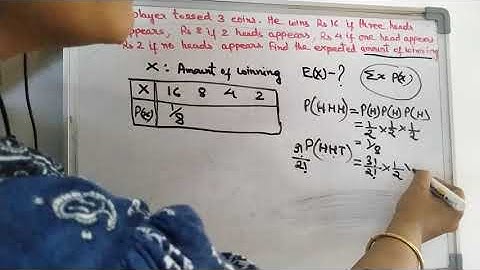 player tossed 3 coins. He wins Rs 16 if three heads
appears, Rs 8 if 2 heads appears, Rs 4 if one head appears
Rs 2 if no heads appears. Find the expected amount of winning
X : Amount of winning
E(X) - ?
Σx P(x)
X 16 8 4 2
P(x) 1/8
P(HHH) = P(H) P(H) P(H)
= 1/2 x 1/2 x 1/2
= 1/8
3!/2! P(HHT) = 3!/2! x 1/2 x